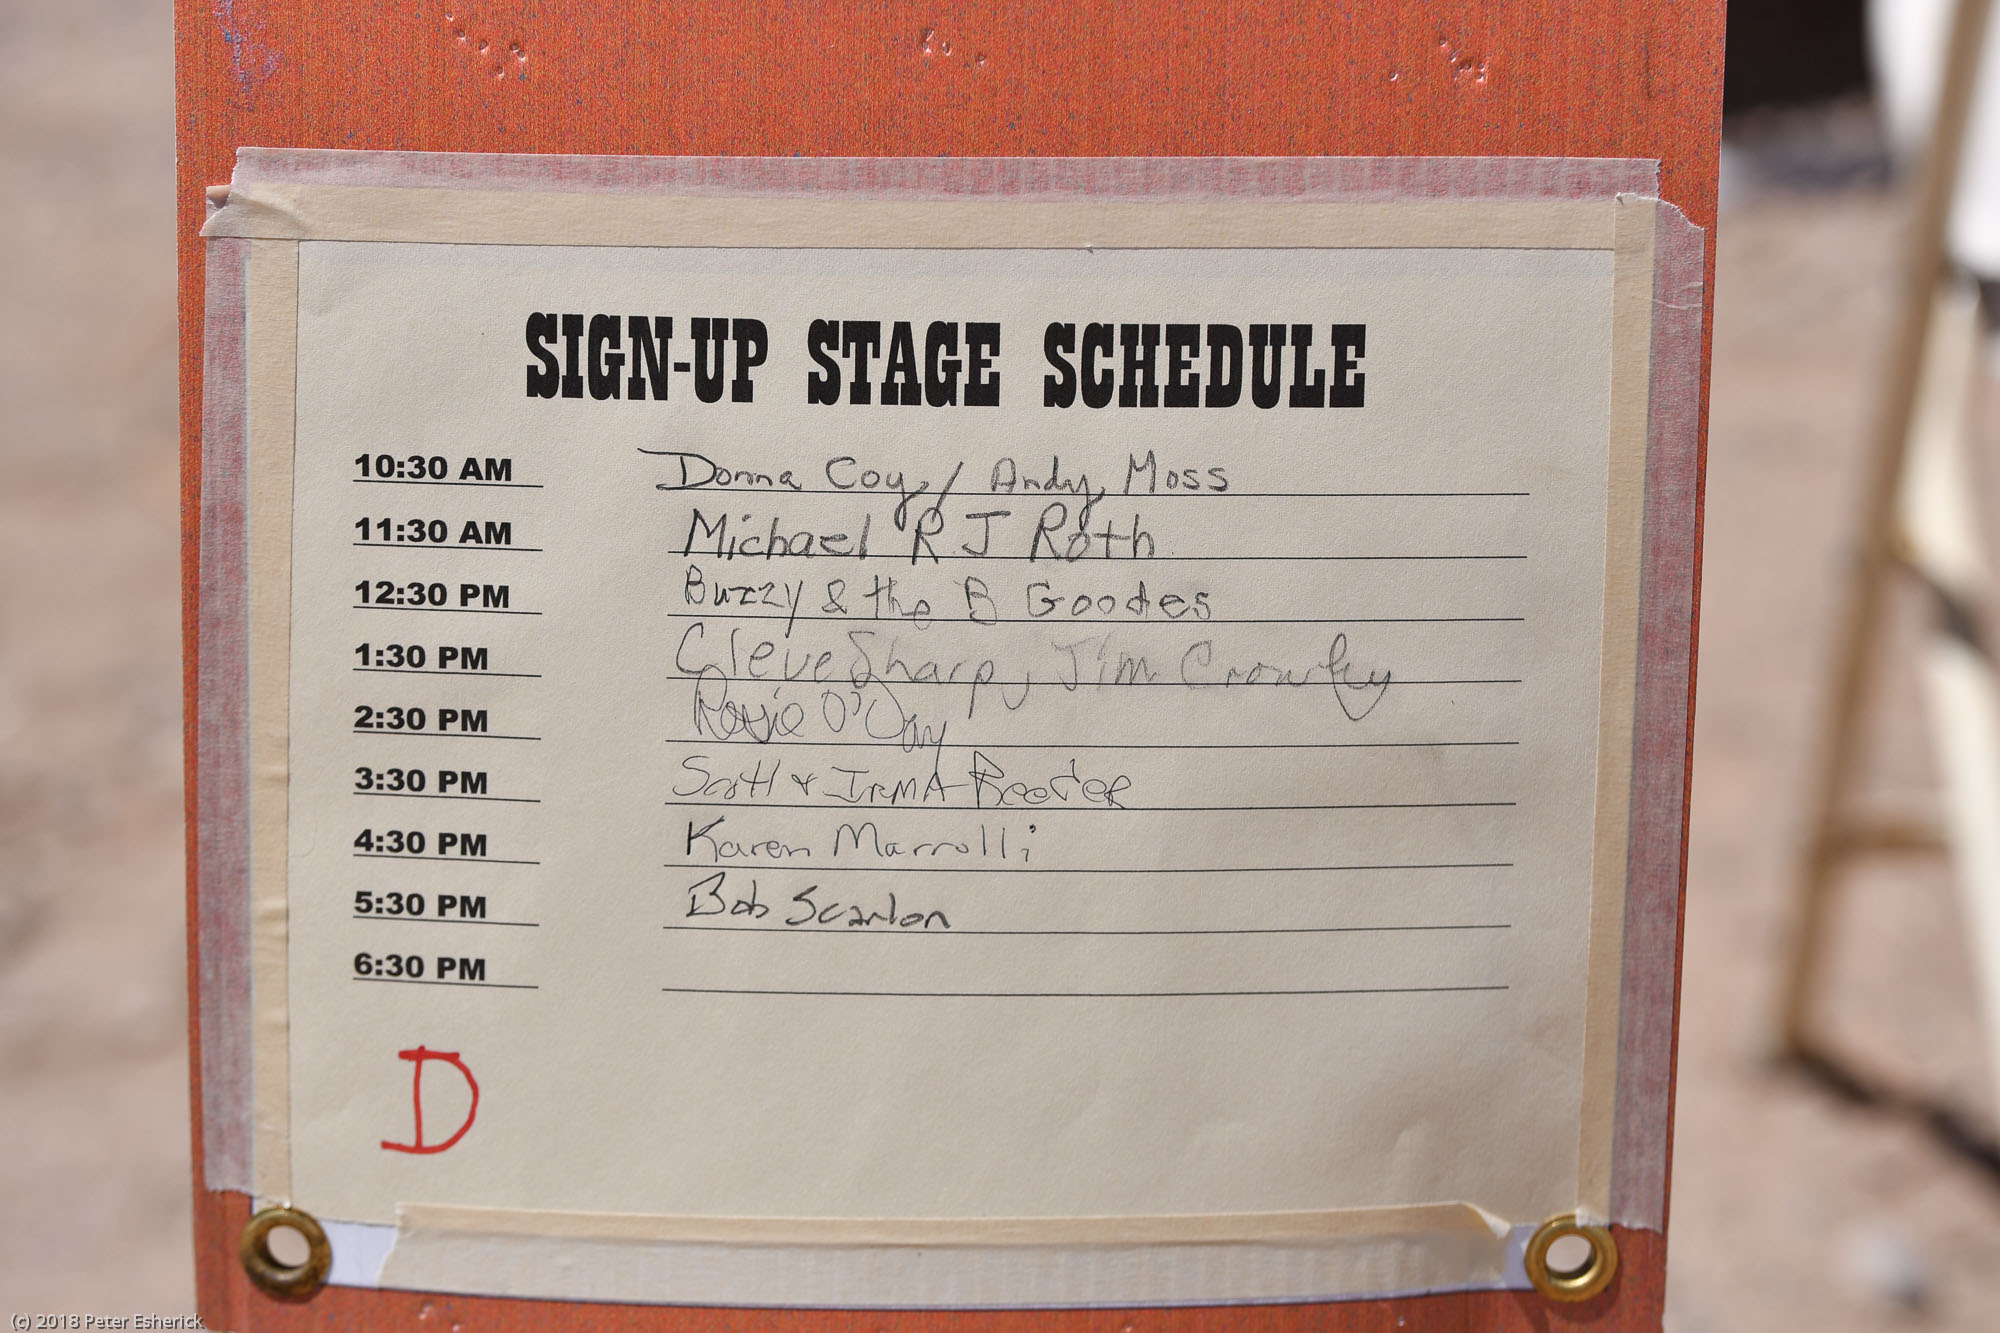 SIGN-UP STAGE SCHEDULE
10:30 AM Donna Coy / Andy Moss
11:30 AM Michael R J Roth
12:30 PM Buzzy & the B Goodes
1:30 PM Cleve Sharp, Jim Crowley
2:30 PM Rosie O'Day
3:30 PM Scott & IRMA Reeder
4:30 PM Karen Marrolli
5:30 PM Bob Scanlon
6:30 PM
D
(c) 2018 Peter Esherick